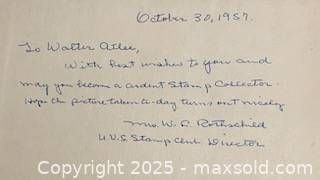 October 30, 1957.
To Walter Atlee,
With best wishes to you and
may you become a ardent Stamp Collector.
Hope the picture taken to-day turns out nicely
Mrs. W. L. Rothschild
U.V.S. Stamp Club Director
Copyright 2025 - maxsold.com